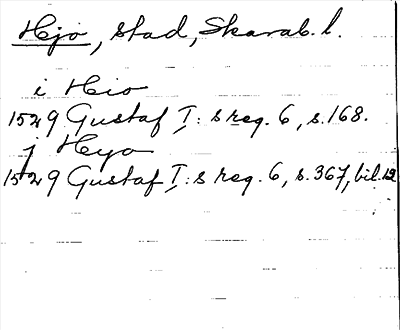 Hjo, stad, Skarab. l.
i Hio
1529 Gustaf I:s reg. 6, s. 168.
j Heyo
1529 Gustaf I:s reg. 6, s. 367, bil. 12